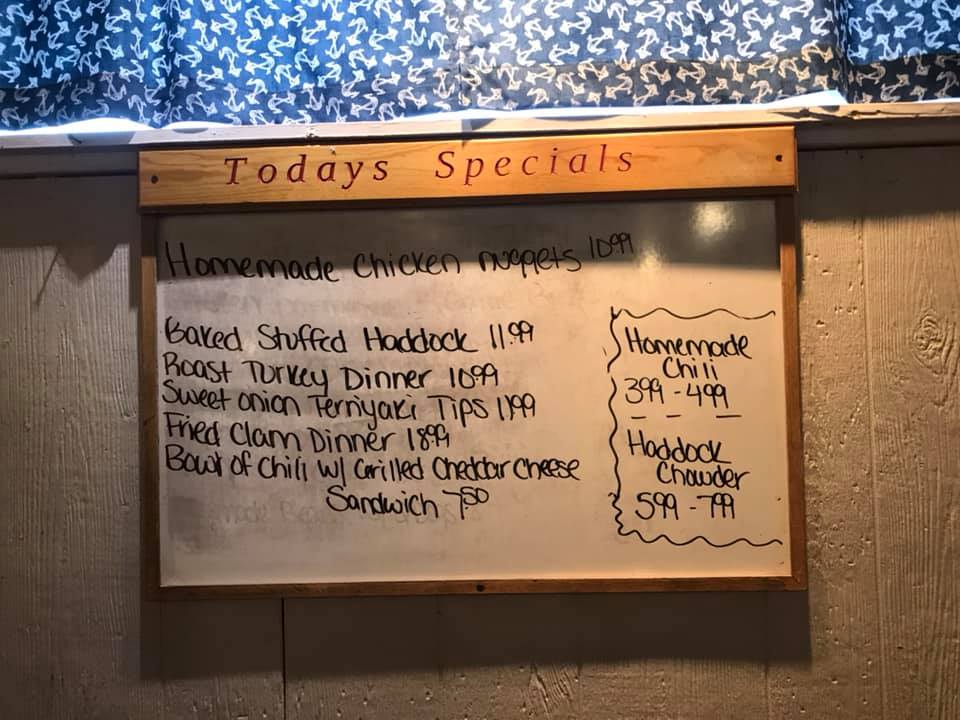 Todays Specials
Homemade Chicken nuggets 10.99
Baked Stuffed Haddock 11.99
Roast Turkey Dinner 10.99
Sweet onion Terriyaki Tips 11.99
Fried Clam Dinner 18.99
Bowl of Chili w/ Grilled Cheddar Cheese
Sandwich 7.50
Homemade
Chili
3.99 - 4.99
Haddock
Chowder
5.99 - 7.99